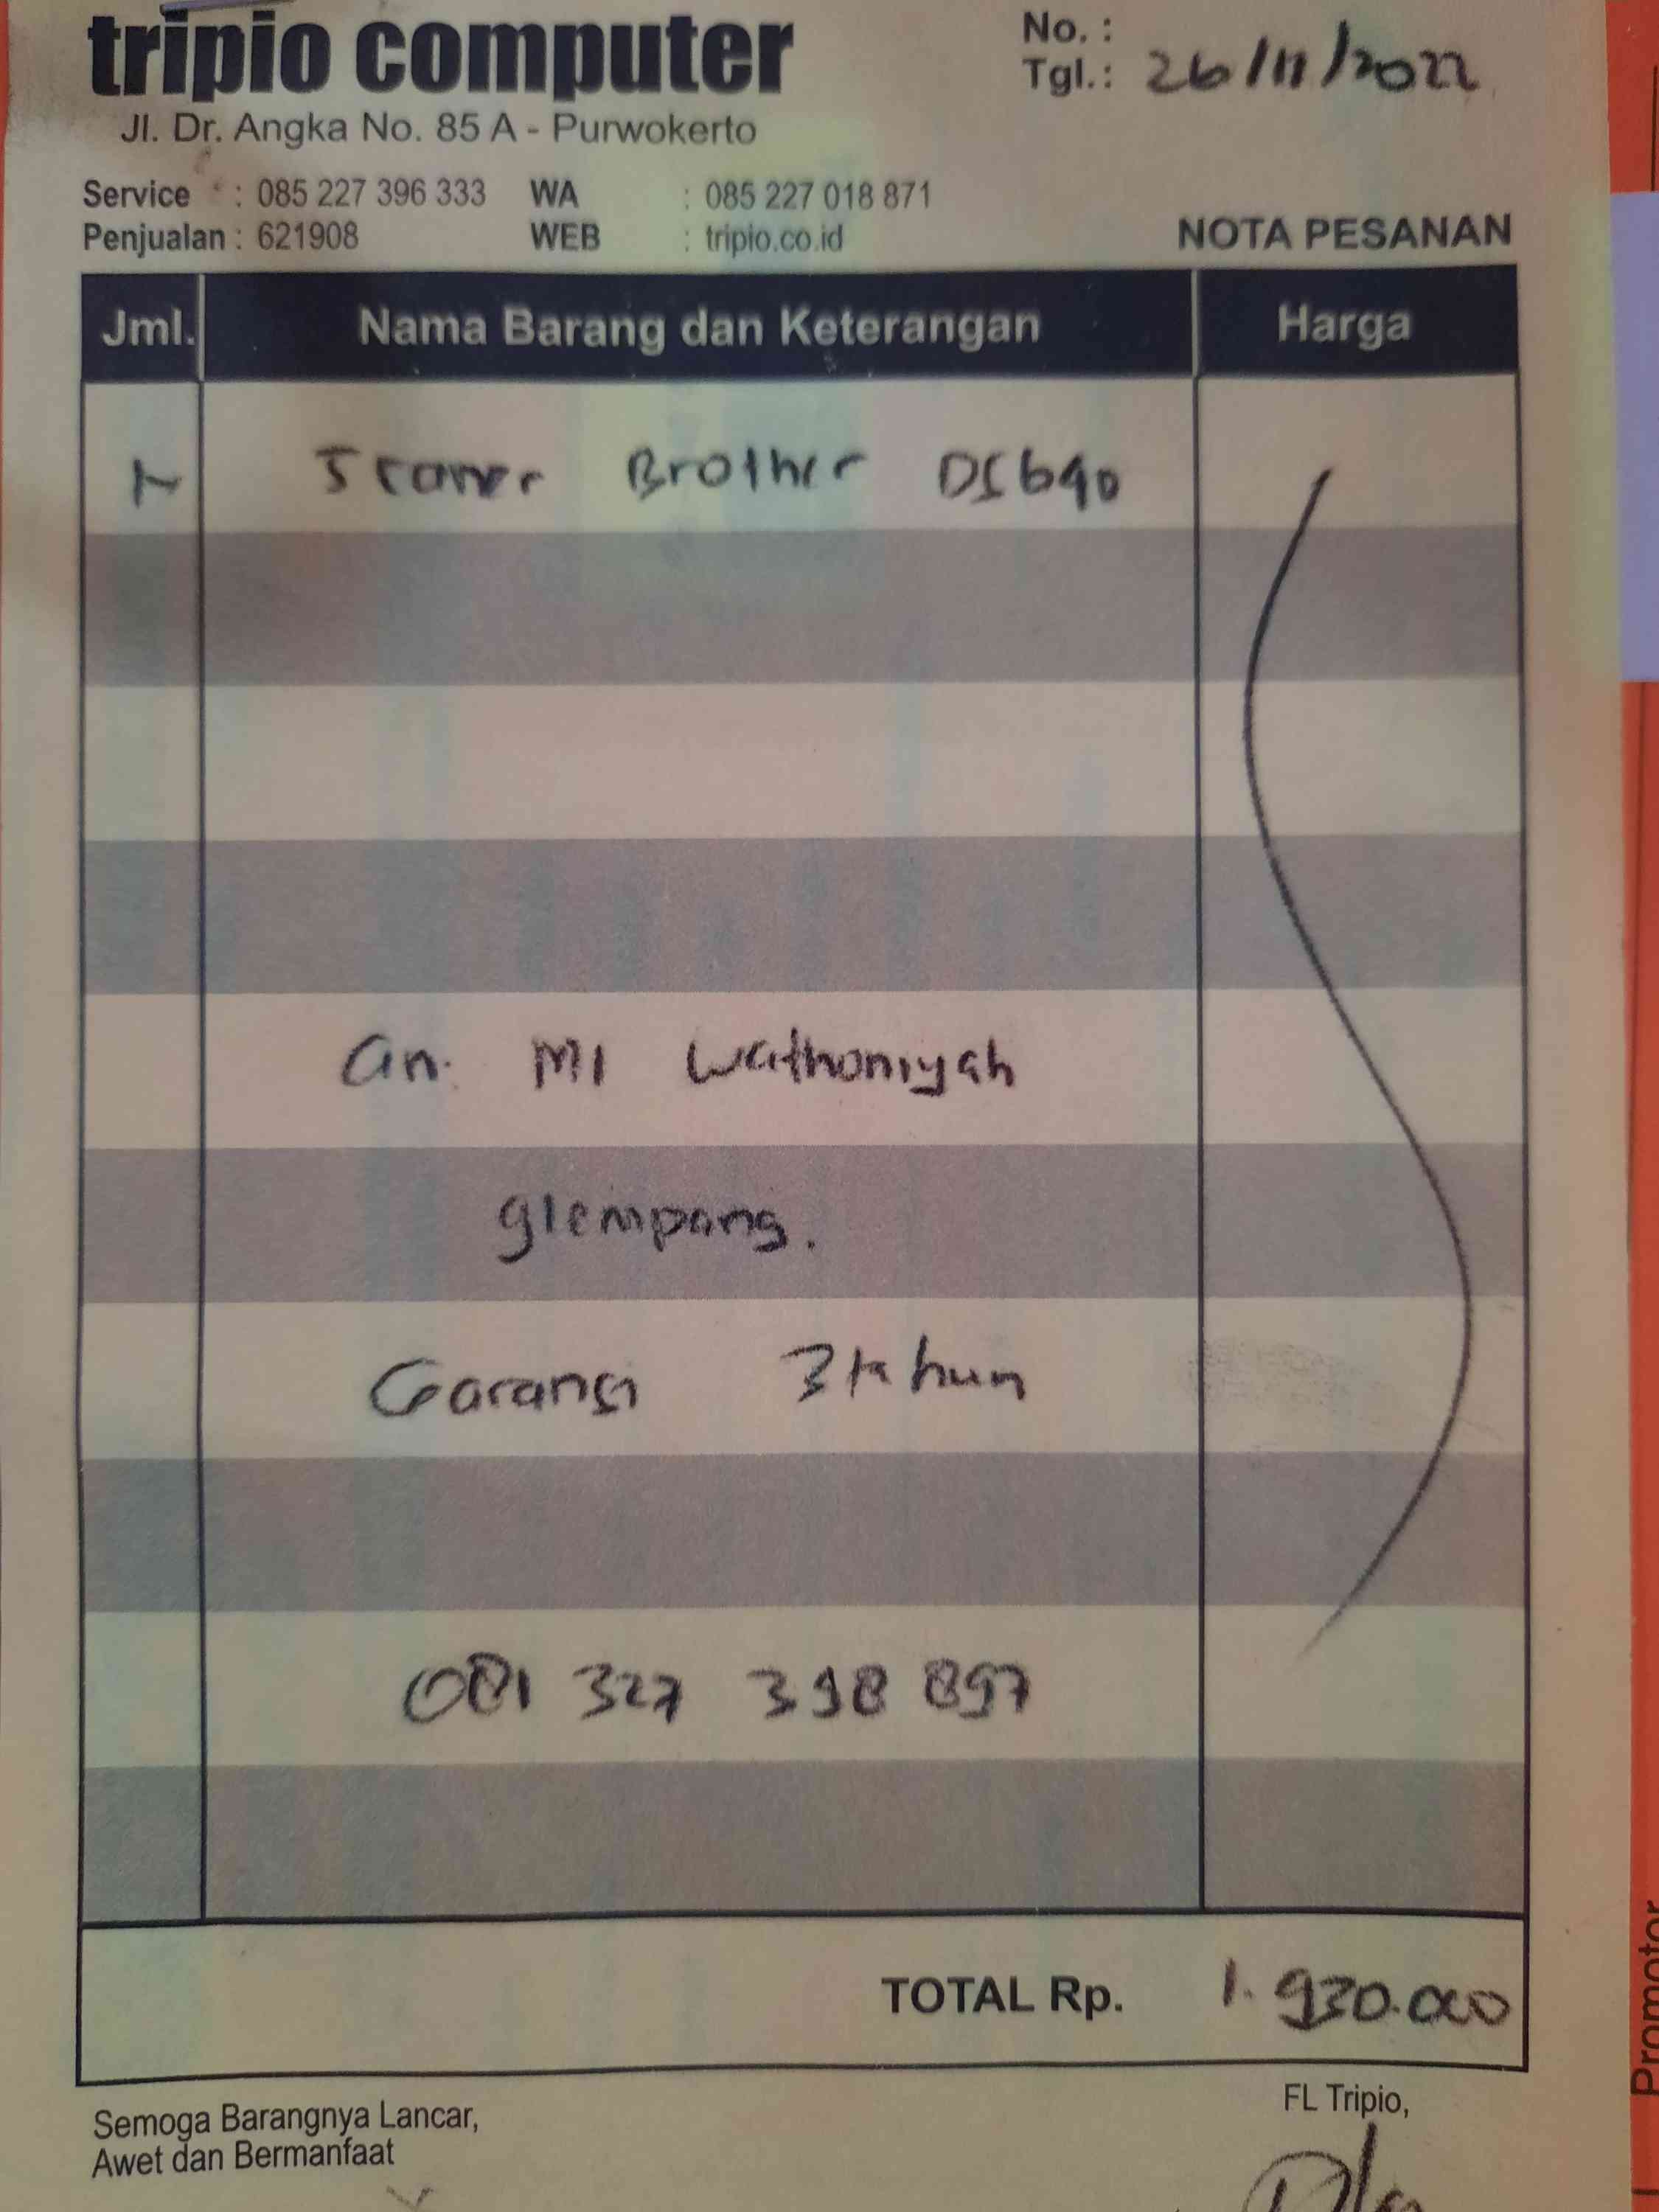 tripio computer
Jl. Dr. Angka No. 85 A - Purwokerto
No. :
Tgl.: 26/11/2022
Service : 085 227 396 333 WA : 085 227 018 871
Penjualan : 621908 WEB : tripio.co.id
NOTA PESANAN
Jml. Nama Barang dan Keterangan Harga
1 Scaner Brother DS640
an. MI Wathoniyah
glempang.
Garansi 3 tahun
081 327 398 897
TOTAL Rp. 1.930.000
Semoga Barangnya Lancar,
Awet dan Bermanfaat
FL Tripio,
Promotor